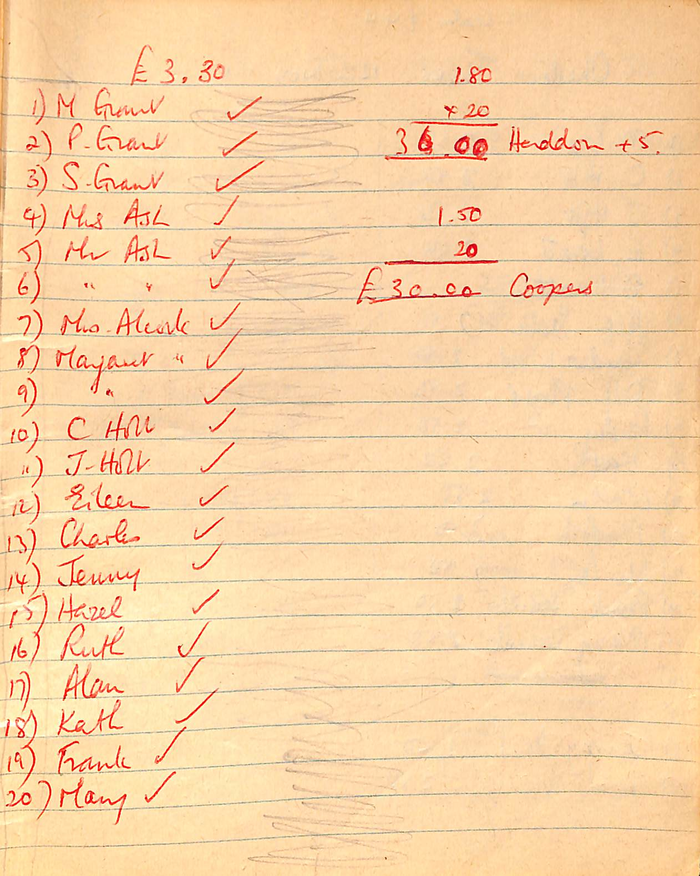 £ 3.30
1) M Grant ✓
2) P. Grant ✓
3) S. Grant ✓
4) Mrs Ash ✓
5) Mr Ash ✓
6) " " ✓
7) Mrs. Alcock ✓
8) Margaret " ✓
9) " ✓
10) C Holt ✓
11) J. Holt ✓
12) Eileen ✓
13) Charles ✓
14) Jenny ✓
15) Hazel ✓
16) Ruth ✓
17) Alan ✓
18) Kath ✓
19) Frank ✓
20) Mary ✓
1.80
× 20
36.00 Haddon + 5.
1.50
20
£30.00 Coopers